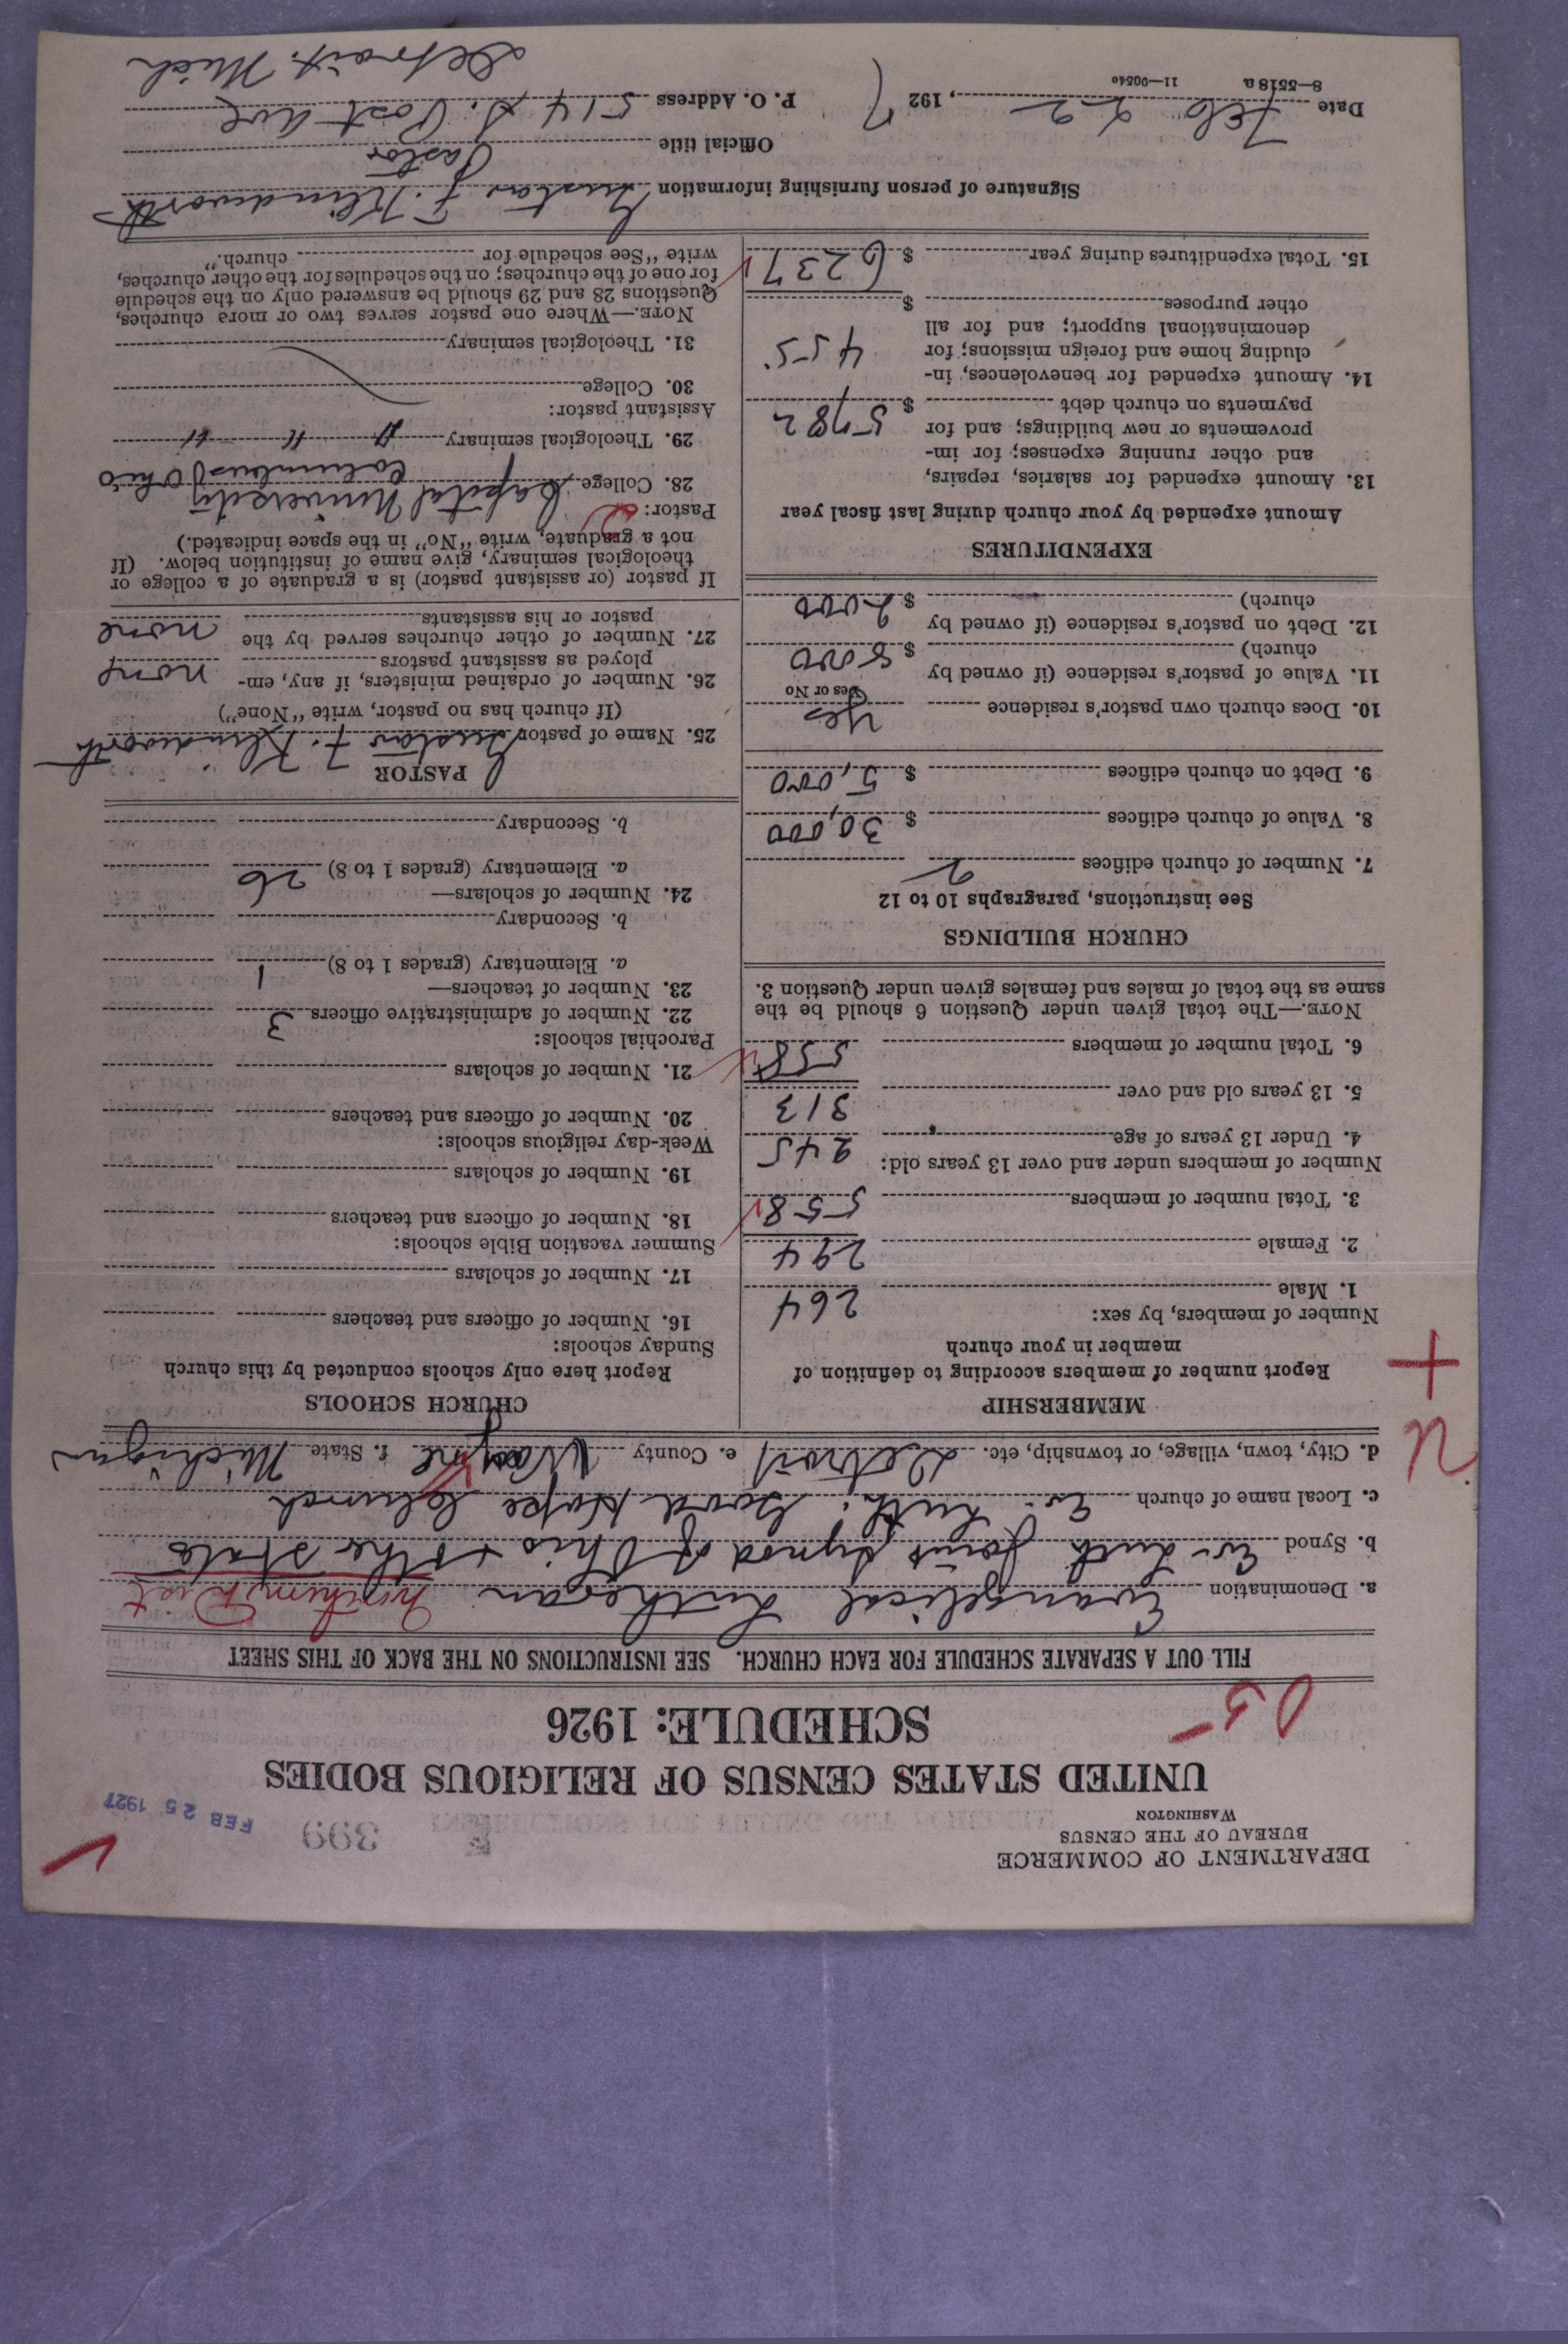 DEPARTMENT OF COMMERCE
BUREAU OF THE CENSUS
WASHINGTON
399
FEB 25 1927
UNITED STATES CENSUS OF RELIGIOUS BODIES
SCHEDULE: 1926
05
FILL OUT A SEPARATE SCHEDULE FOR EACH CHURCH. SEE INSTRUCTIONS ON THE BACK OF THIS SHEET
a. Denomination Evangelical Lutheran Dist
b. Synod Ev. Luth Joint Synod of Ohio & other State
c. Local name of church Ev. Luth. Good Hope Church
d. City, town, village, or township, etc. Detroit e. County Wayne f. State Michigan
U
+
MEMBERSHIP
Report number of members according to definition of
member in your church
Number of members, by sex:
1. Male 264
2. Female 294
3. Total number of members 558
Number of members under and over 13 years old:
4. Under 13 years of age 245
5. 13 years old and over 313
6. Total number of members 558
NOTE.—The total given under Question 6 should be the
same as the total of males and females given under Question 3.
CHURCH BUILDINGS
See instructions, paragraphs 10 to 12
7. Number of church edifices 2
8. Value of church edifices $ 30,000
9. Debt on church edifices $ 5,000
10. Does church own pastor's residence Yes
Yes or No
11. Value of pastor's residence (if owned by
church) $ 8000
12. Debt on pastor's residence (if owned by
church) $ 2000
EXPENDITURES
Amount expended by your church during last fiscal year
13. Amount expended for salaries, repairs,
and other running expenses; for im-
provements or new buildings; and for
payments on church debt $ 5782
14. Amount expended for benevolences, in-
cluding home and foreign missions; for
denominational support; and for all
other purposes $ 455
15. Total expenditures during year $ 6237
CHURCH SCHOOLS
Report here only schools conducted by this church
Sunday schools:
16. Number of officers and teachers
17. Number of scholars
Summer vacation Bible schools:
18. Number of officers and teachers
19. Number of scholars
Week-day religious schools:
20. Number of officers and teachers
21. Number of scholars
Parochial schools:
22. Number of administrative officers 3
23. Number of teachers—
a. Elementary (grades 1 to 8) 1
b. Secondary
24. Number of scholars—
a. Elementary (grades 1 to 8) 26
b. Secondary
PASTOR
25. Name of pastor Gustav F. Klindworth
(If church has no pastor, write "None")
26. Number of ordained ministers, if any, em-
ployed as assistant pastors none
27. Number of other churches served by the
pastor or his assistants none
If pastor (or assistant pastor) is a graduate of a college or
theological seminary, give name of institution below. (If
not a graduate, write "No" in the space indicated.)
Pastor:
28. College Capital University Columbus Ohio
29. Theological seminary " " "
Assistant pastor:
30. College
31. Theological seminary
NOTE.—Where one pastor serves two or more churches,
Questions 28 and 29 should be answered only on the schedule
for one of the churches; on the schedules for the other churches,
write "See schedule for church."
Signature of person furnishing information Gustav F. Klindworth
Official title Pastor
Date Feb 22, 1927 P. O. Address 514 S. Post Ave
Detroit. Mich
8—5518 a 11—9054o